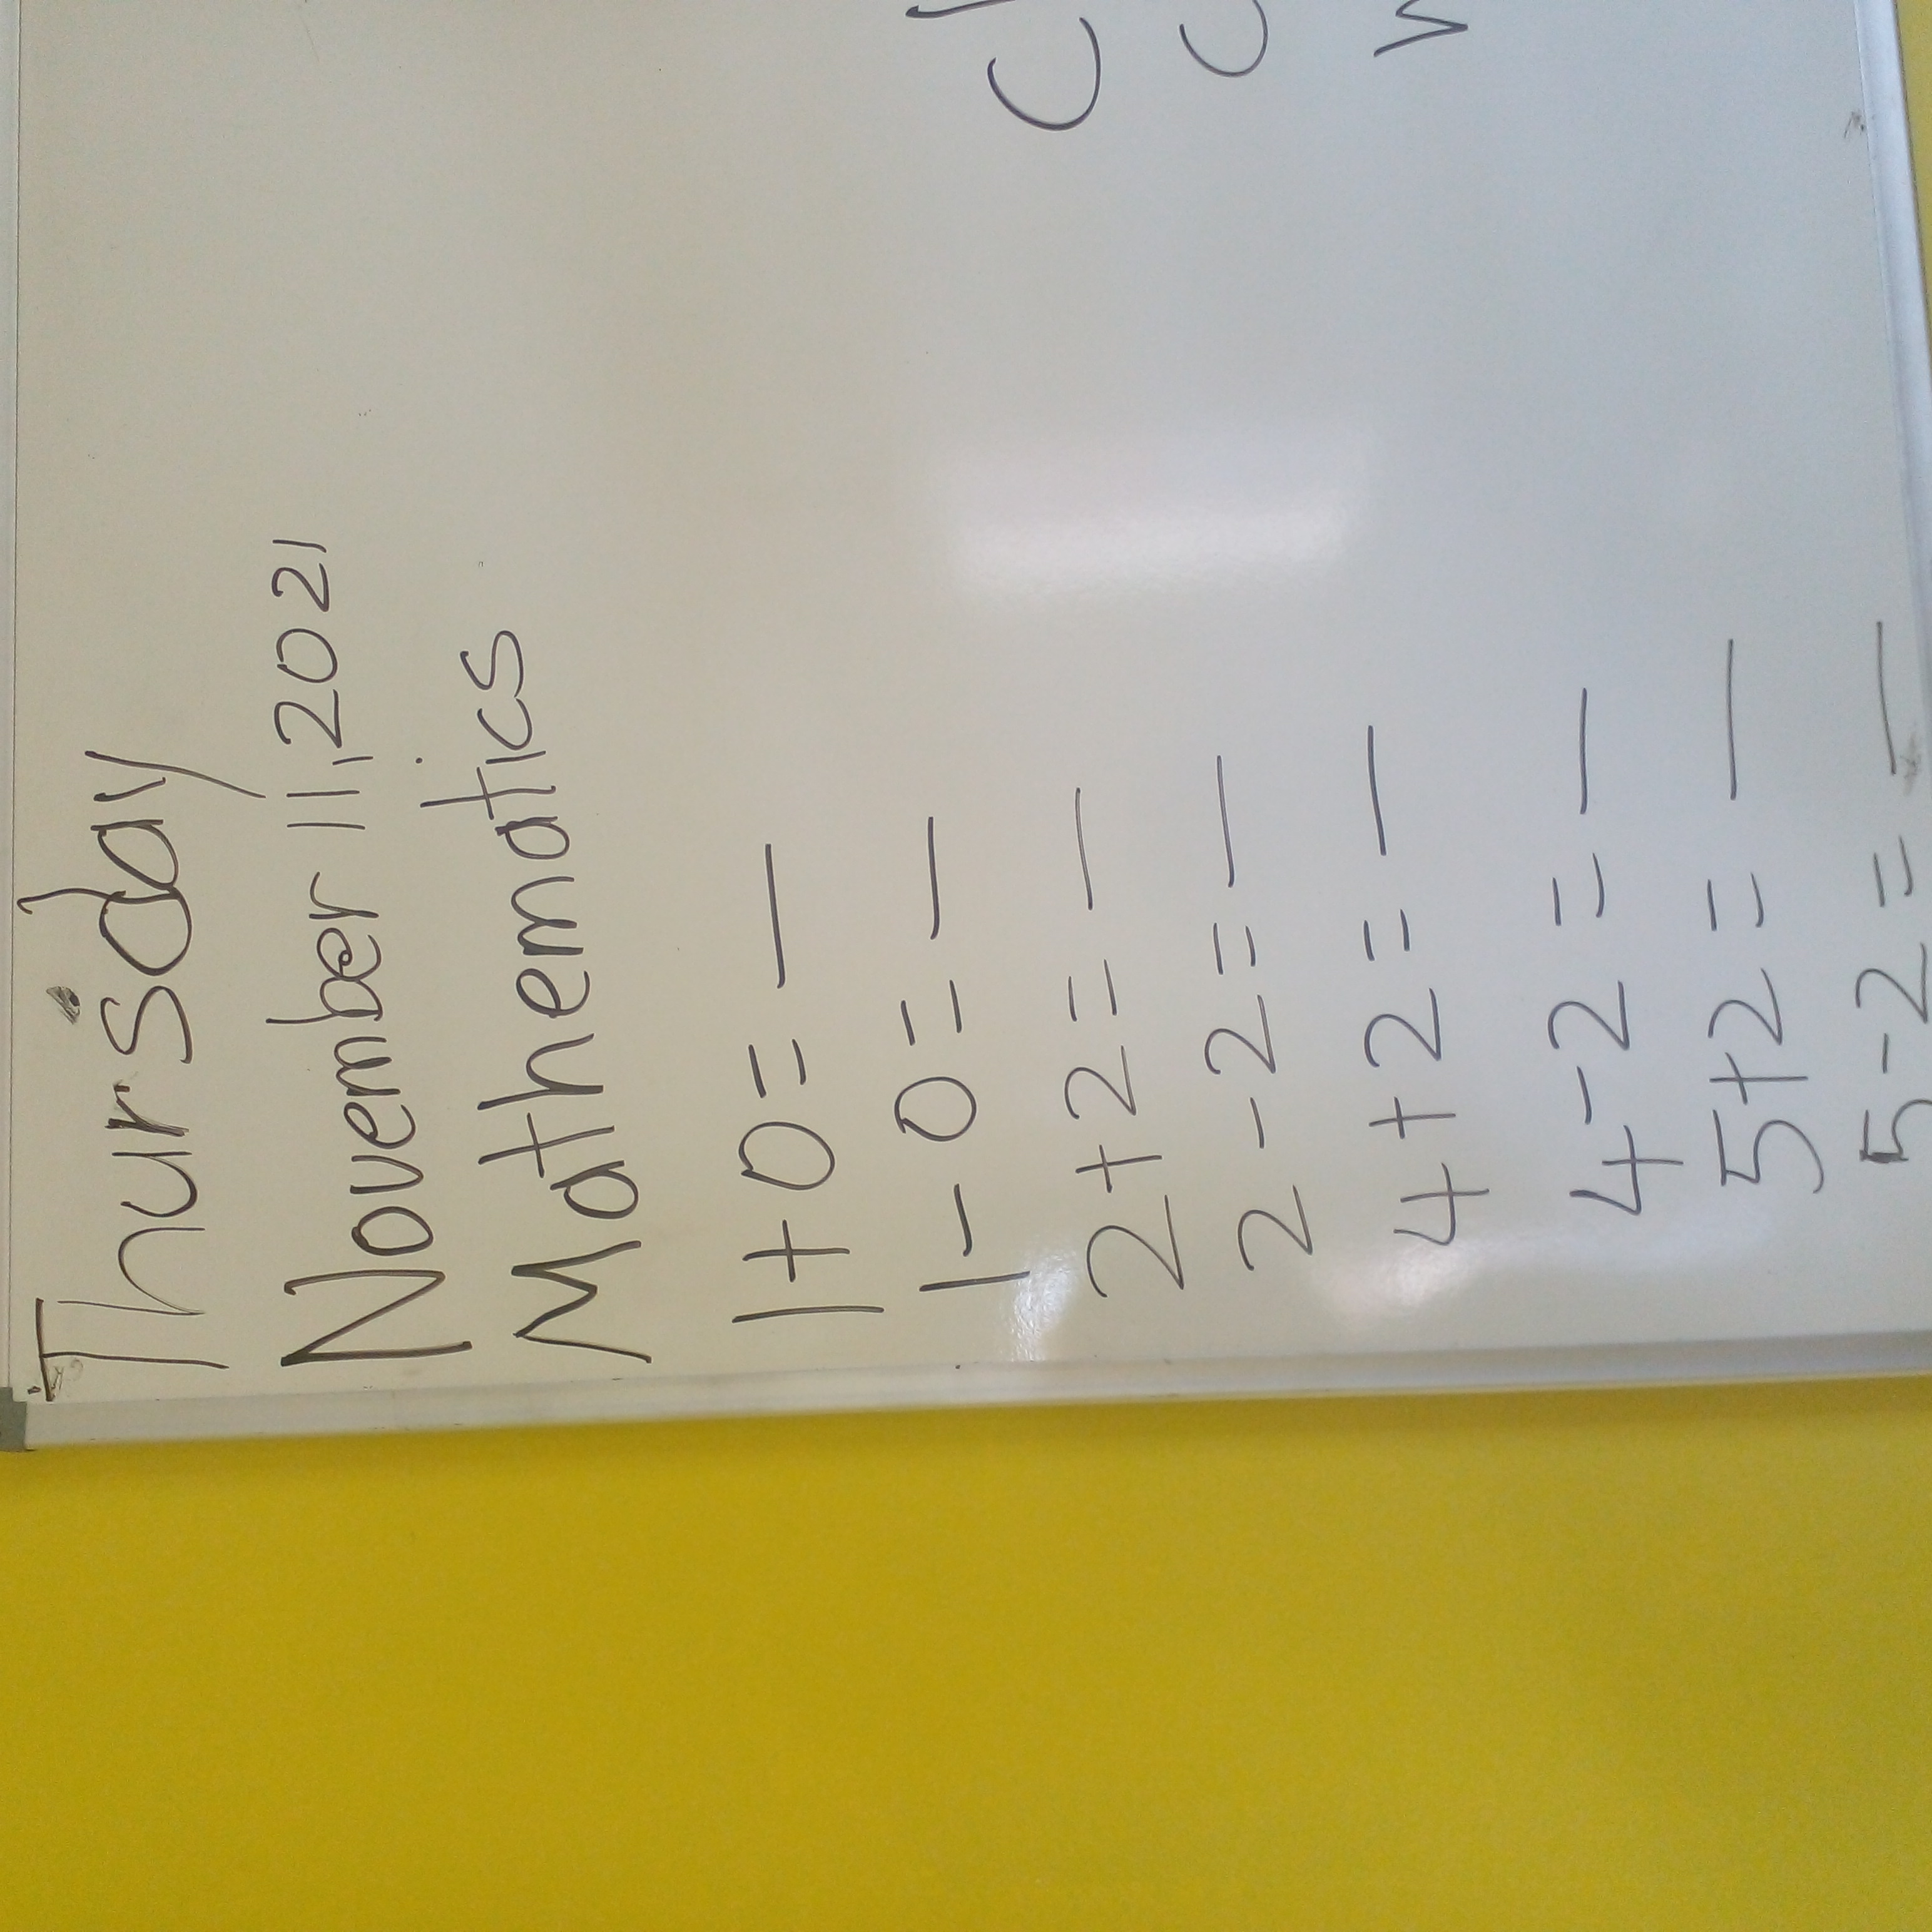 Thursday
November 11, 2021
Mathematics
1+0= __
1-0= __
2+2= __
2-2= __
4+2= __
4-2= __
5+2= __
5-2= __